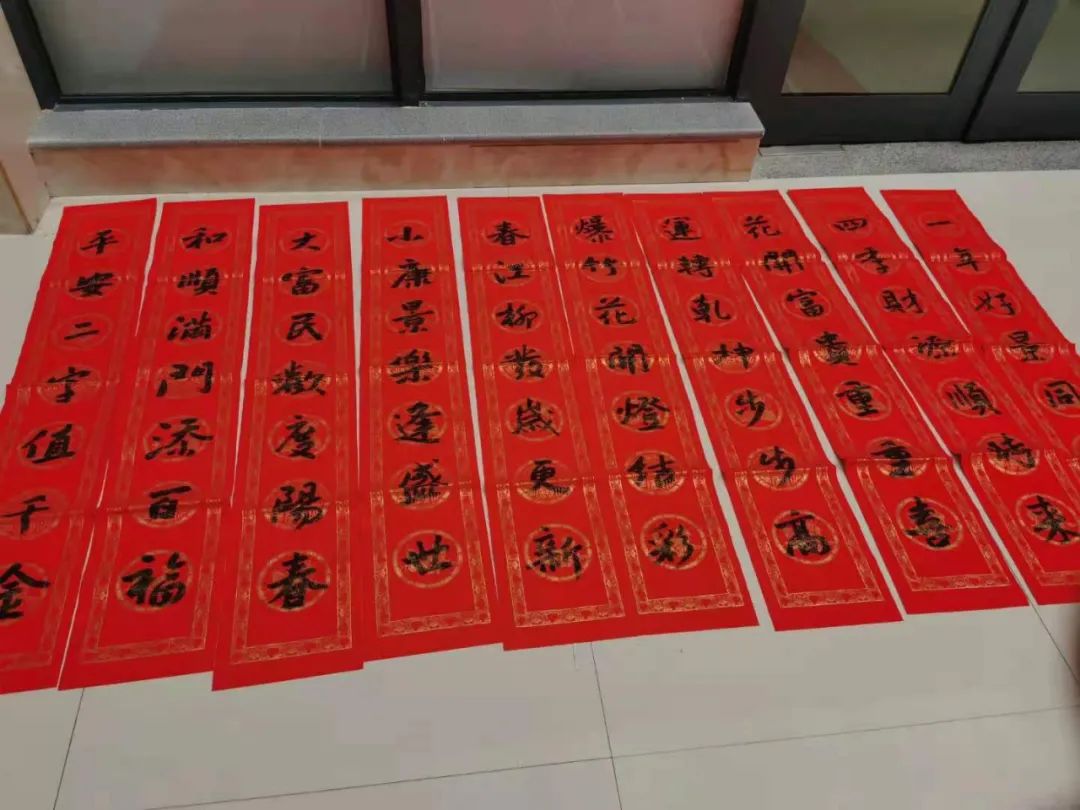 一年好景同
四季財添順时来
花開富貴重重喜
運轉乾坤步步高
爆竹花開燈結彩
春江柳發歲更新
小康景樂逢盛世
大富民歡度陽春
和順滿門添百福
平安二字值千金